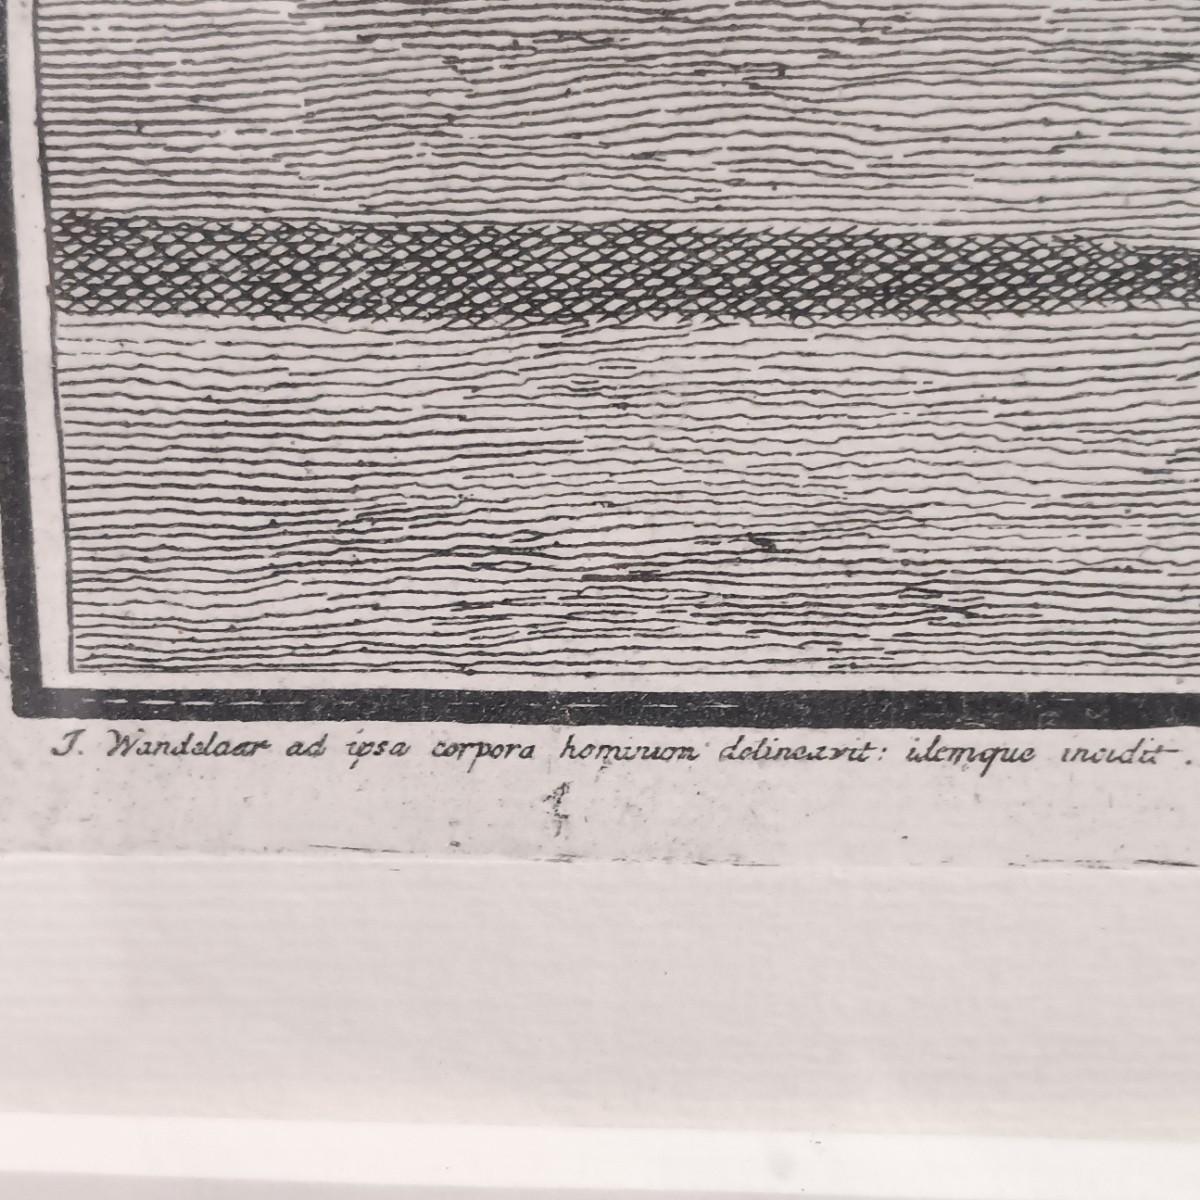 J. Wandelaar ad ipsa corpora hominum delineavit: idemque incidit.